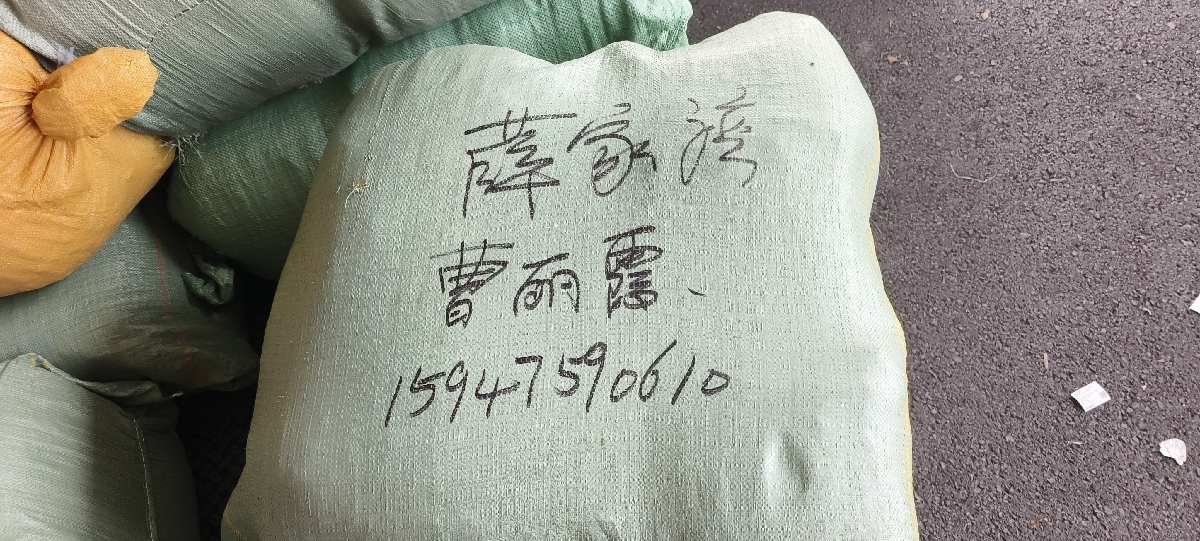 薛家湾
曹丽霞、
15947590610